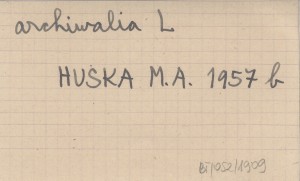 archiwalia L
HUSKA M.A. 1957 b
BI/052/1909